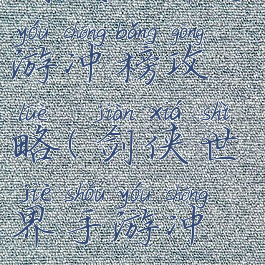 yóu chōng bǎng gōng
游冲榜攻
lüè jiàn xiá shì
略(剑侠世
jiè shǒu yóu chōng
界手游冲